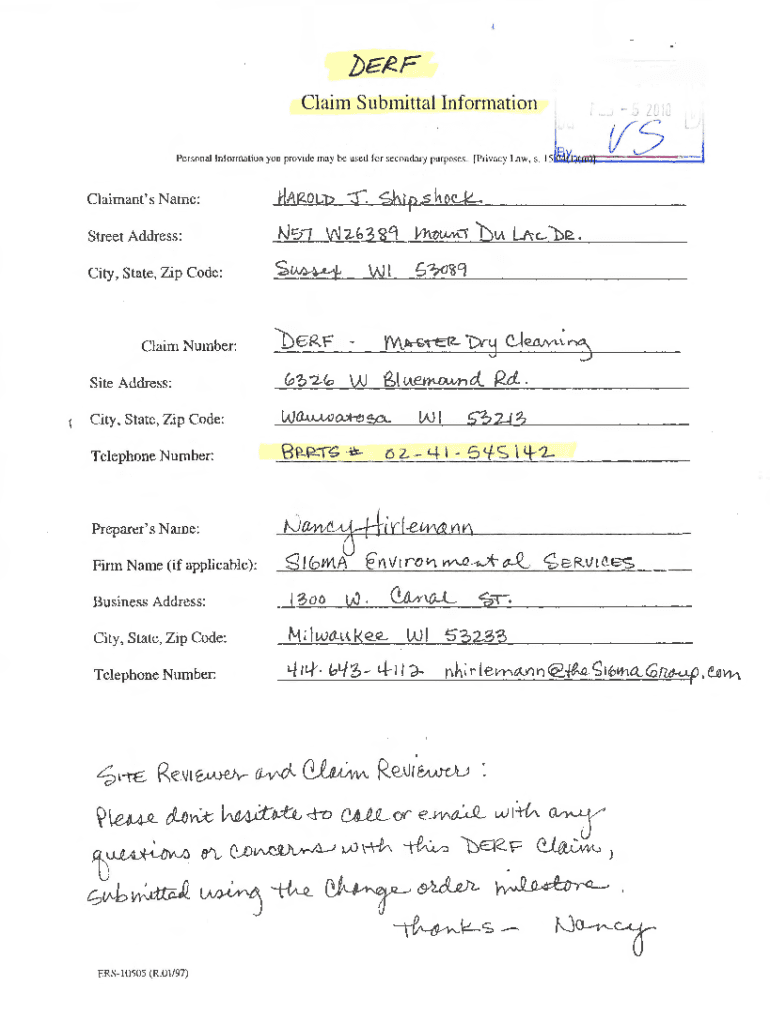 DERF
Claim Submittal Information
- 5 2018
By VS
Personal Information you provide may be used for secondary purposes. [Privacy Law, s.
Claimant's Name: HAROLD J. Shipshock
Street Address: N57 W26389 Mount Du Lac DR.
City, State, Zip Code: Sussex WI 53089
Claim Number: DERF - MASTER Dry Cleaning
Site Address: 6326 W Bluemound Rd.
City, State, Zip Code: Wauwatosa WI 53213
Telephone Number: BRRTS # 02-41-545142
Preparer's Name: Nancy Hirlemann
Firm Name (if applicable): SIGMA Environmental SERVICES
Business Address: 1300 W. Canal ST.
City, State, Zip Code: Milwaukee WI 53233
Telephone Number: 414-643-4112 nhirlemann@theSigmaGroup.com
SITE Reviewer and Claim Reviewer:
Please don't hesitate to call or email with any
questions or concerns with this DERF Claim,
submitted using the Change order milestone.
Thanks - Nancy
ERS-10505 (R.01/97)